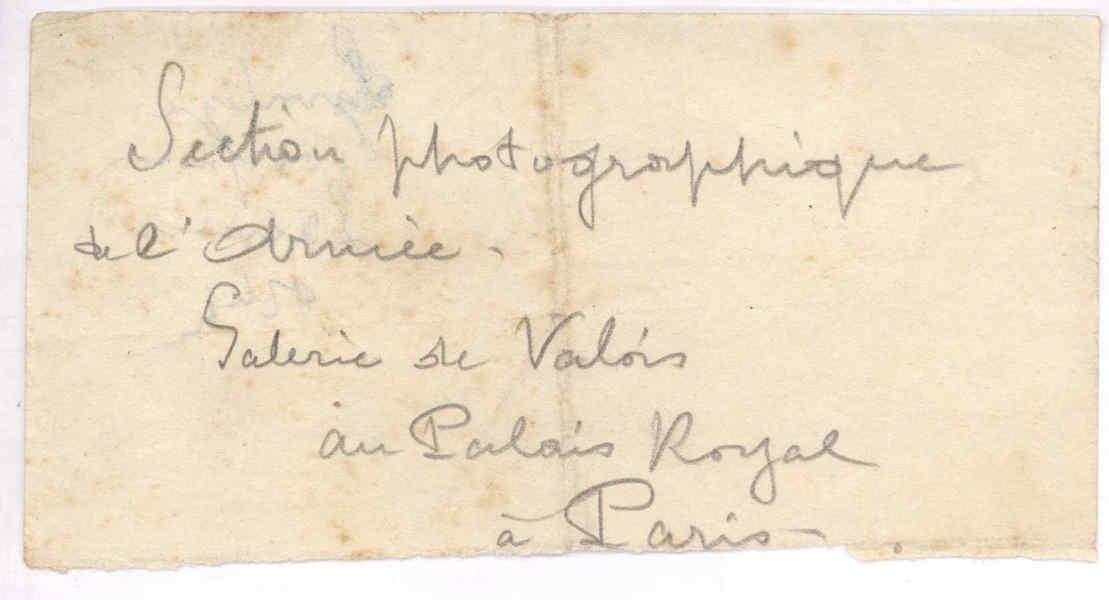 Section photographique
de l'Armée.
Galerie de Valois
au Palais Royal
à Paris